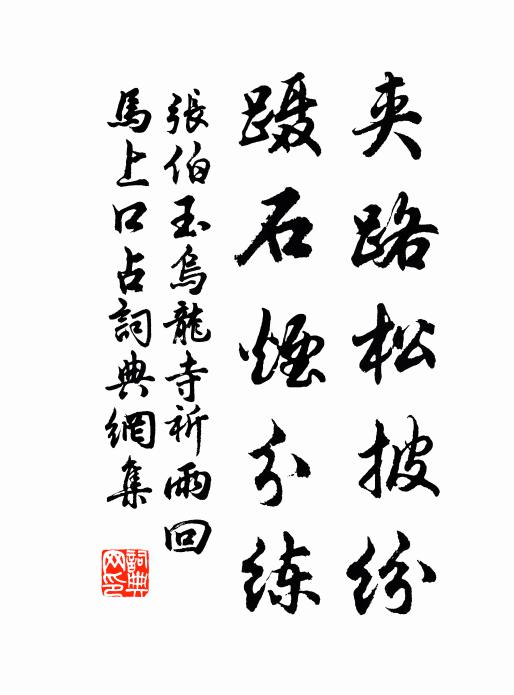 夹路松披纷
蹑石烟分练
張伯玉烏龍寺祈雨回
馬上口占詞典網集
詞典
网印